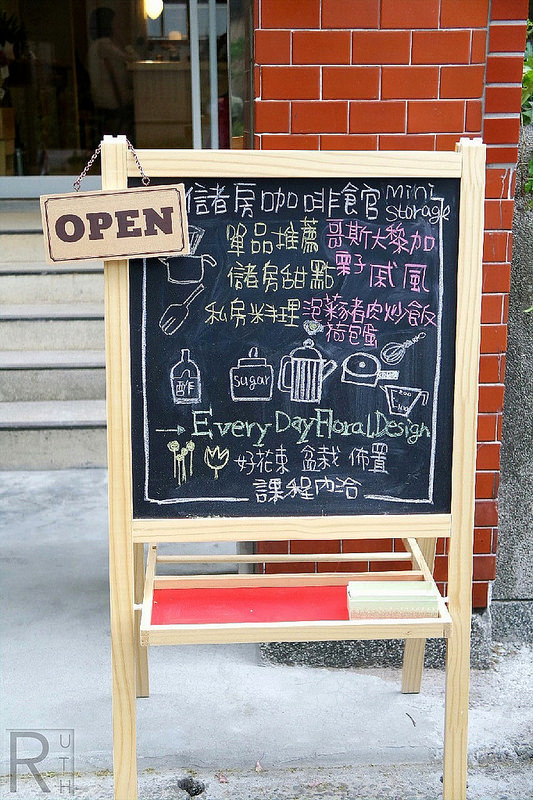 OPEN
儲房咖啡館 mini storage
單品推薦 哥斯大黎加
儲房甜點 栗子戚風
私房料理 泡菜豬肉炒飯
荷包蛋
酢 sugar
→ Every Day Floral Design
好花束 盆栽 佈置
課程內洽
RUTH